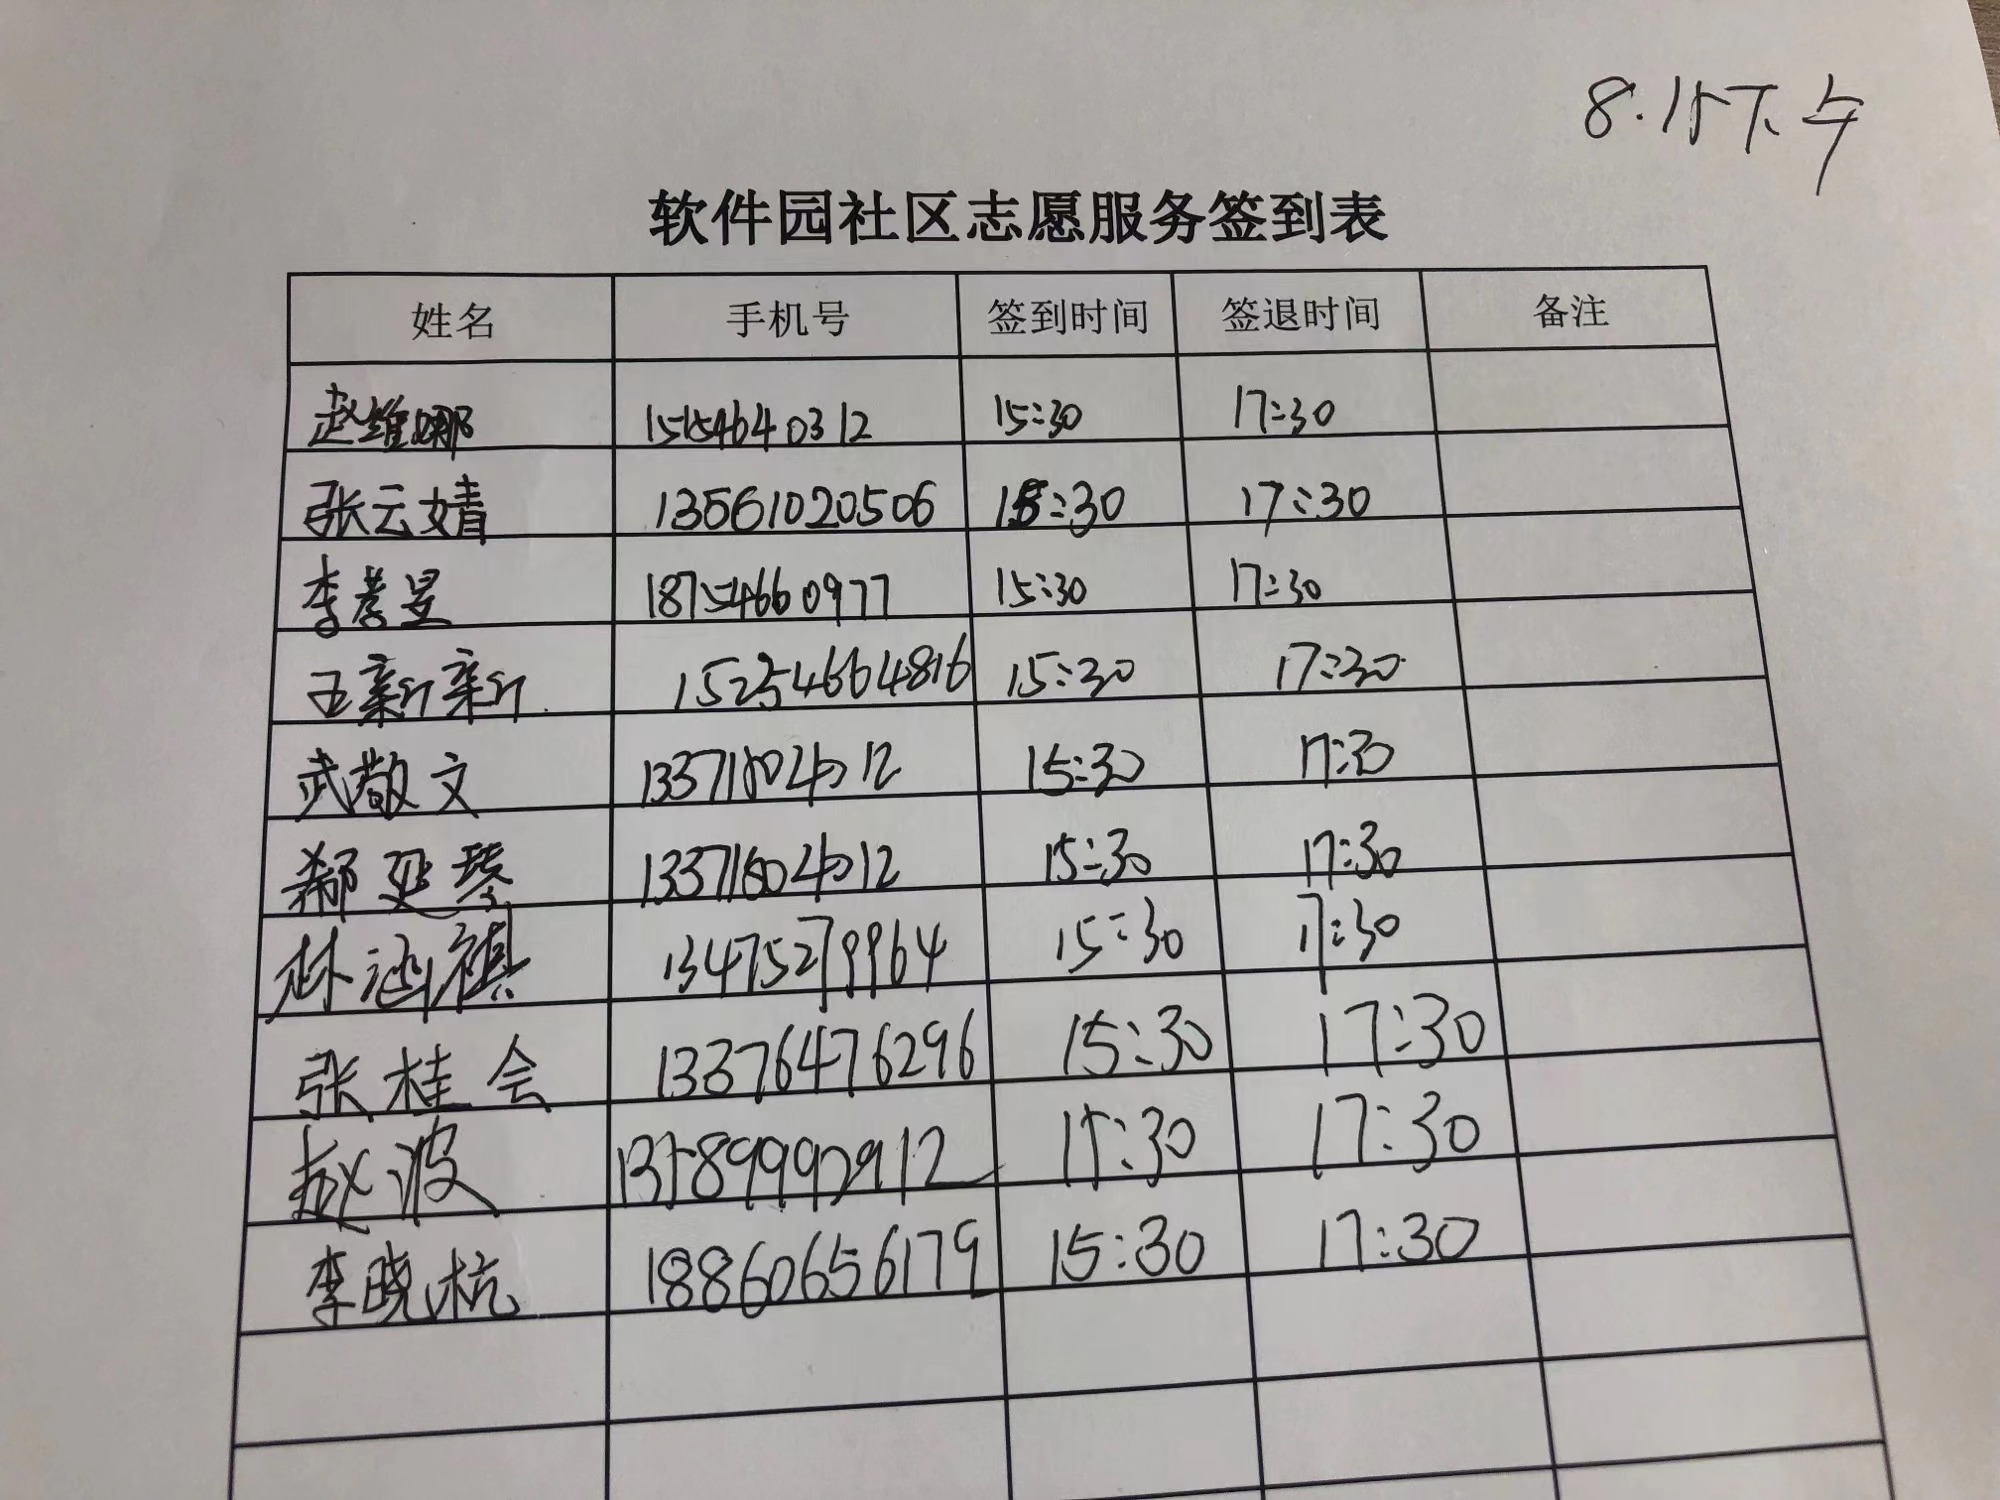 8.15下午
软件园社区志愿服务签到表
姓名 手机号 签到时间 签退时间 备注
赵维娜 15154640312 15:30 17:30
张云婧 13561020506 15:30 17:30
李孝旻 18754660977 15:30 17:30
王新新 15254664816 15:30 17:30
武敬文 13371604012 15:30 17:30
郝延琴 13371604012 15:30 17:30
林涵祺 13475279964 15:30 17:30
张桂会 13376476296 15:30 17:30
赵波 13589992912 15:30 17:30
李晓杭 18860656179 15:30 17:30